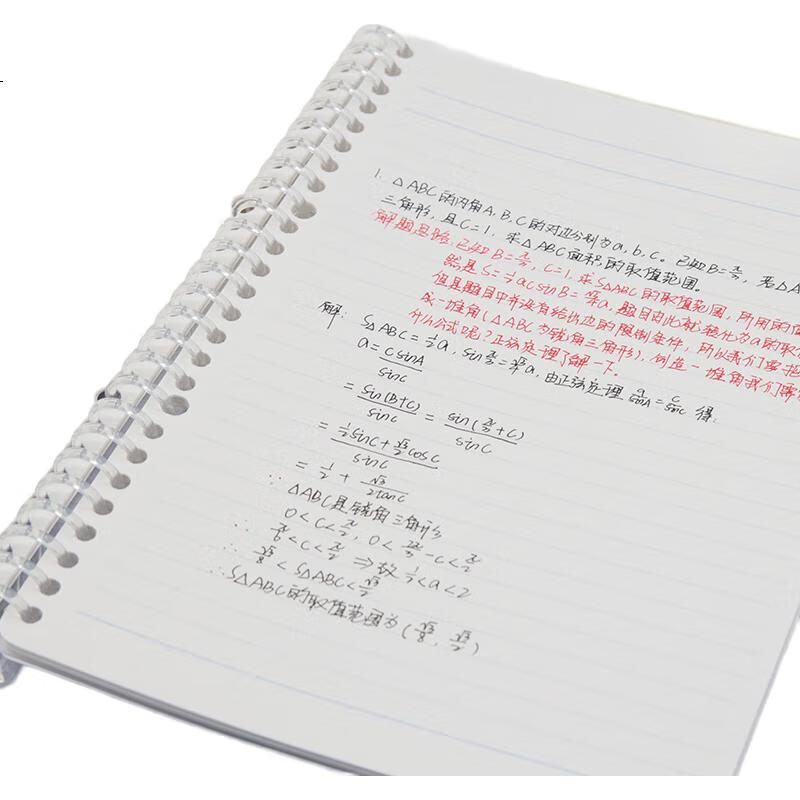 1. △ABC的内角A,B,C的对边分别为a,b,c。已知B=π/3,若△A
三角形,且C=1,求△ABC面积的取值范围。
解题思路:已知B=π/3,C=1,求S△ABC的取值范围,所用的
就是S=½acsinB=√3/4a,题目由此就转化为a的取
但是题目中并没有给出边的限制条件,所以我们需把
成一堆角(△ABC为锐角三角形),创造一堆角我们需
什么公式呢?正弦定理了解一下。
解: S△ABC=½a,sinπ/3=√3/4a,由正弦定理 a/sinA=c/sinC 得:
a=csinA/sinC
=sin(B+C)/sinC=sin(π/3+C)/sinC
=(½sinC+√3/2cosC)/sinC
=½+√3/2tanC
∵△ABC是锐角三角形
∴0<C<π/2,0<2π/3-C<π/2
∴π/6<C<π/2⇒故½<a<2
√3/8<S△ABC<√3/2
∴S△ABC的取值范围为(√3/8,√3/2)